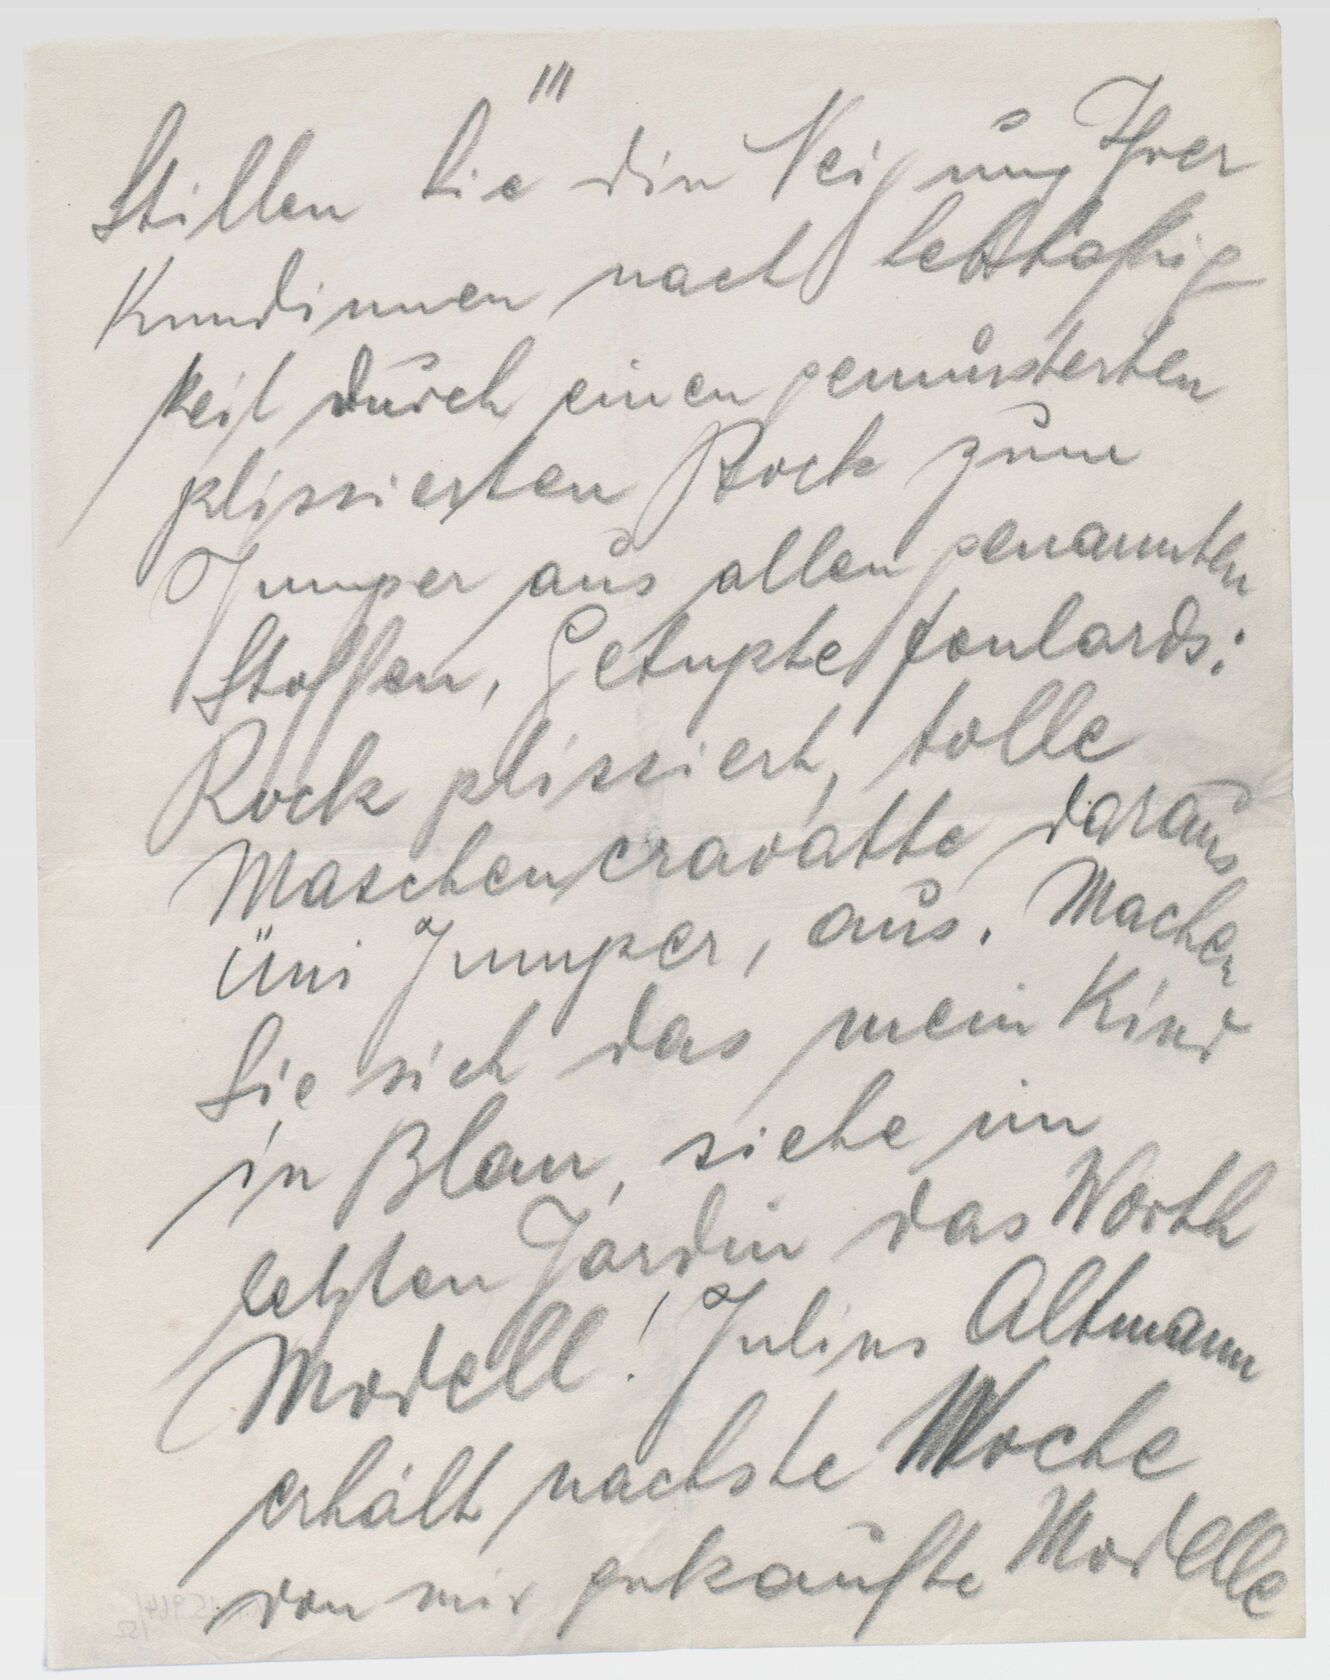 III
Stillen Sie die Neigung Ihrer
Kundinnen nach lebhaftig
keit durch einen gemusterten
plissierten Rock zum
Jumper aus allen genannten
Stoffen, Getupfte foulards:
Rock plissiert, tolle
Maschencravatte daraus
Üni Jumper, aus. Machen
Sie sich das mein Kind
in Blau, siehe im
letzten Jardin das Worth
Modell! Julius Altmann
erhält nächste Woche
von mir gekaufte Modelle